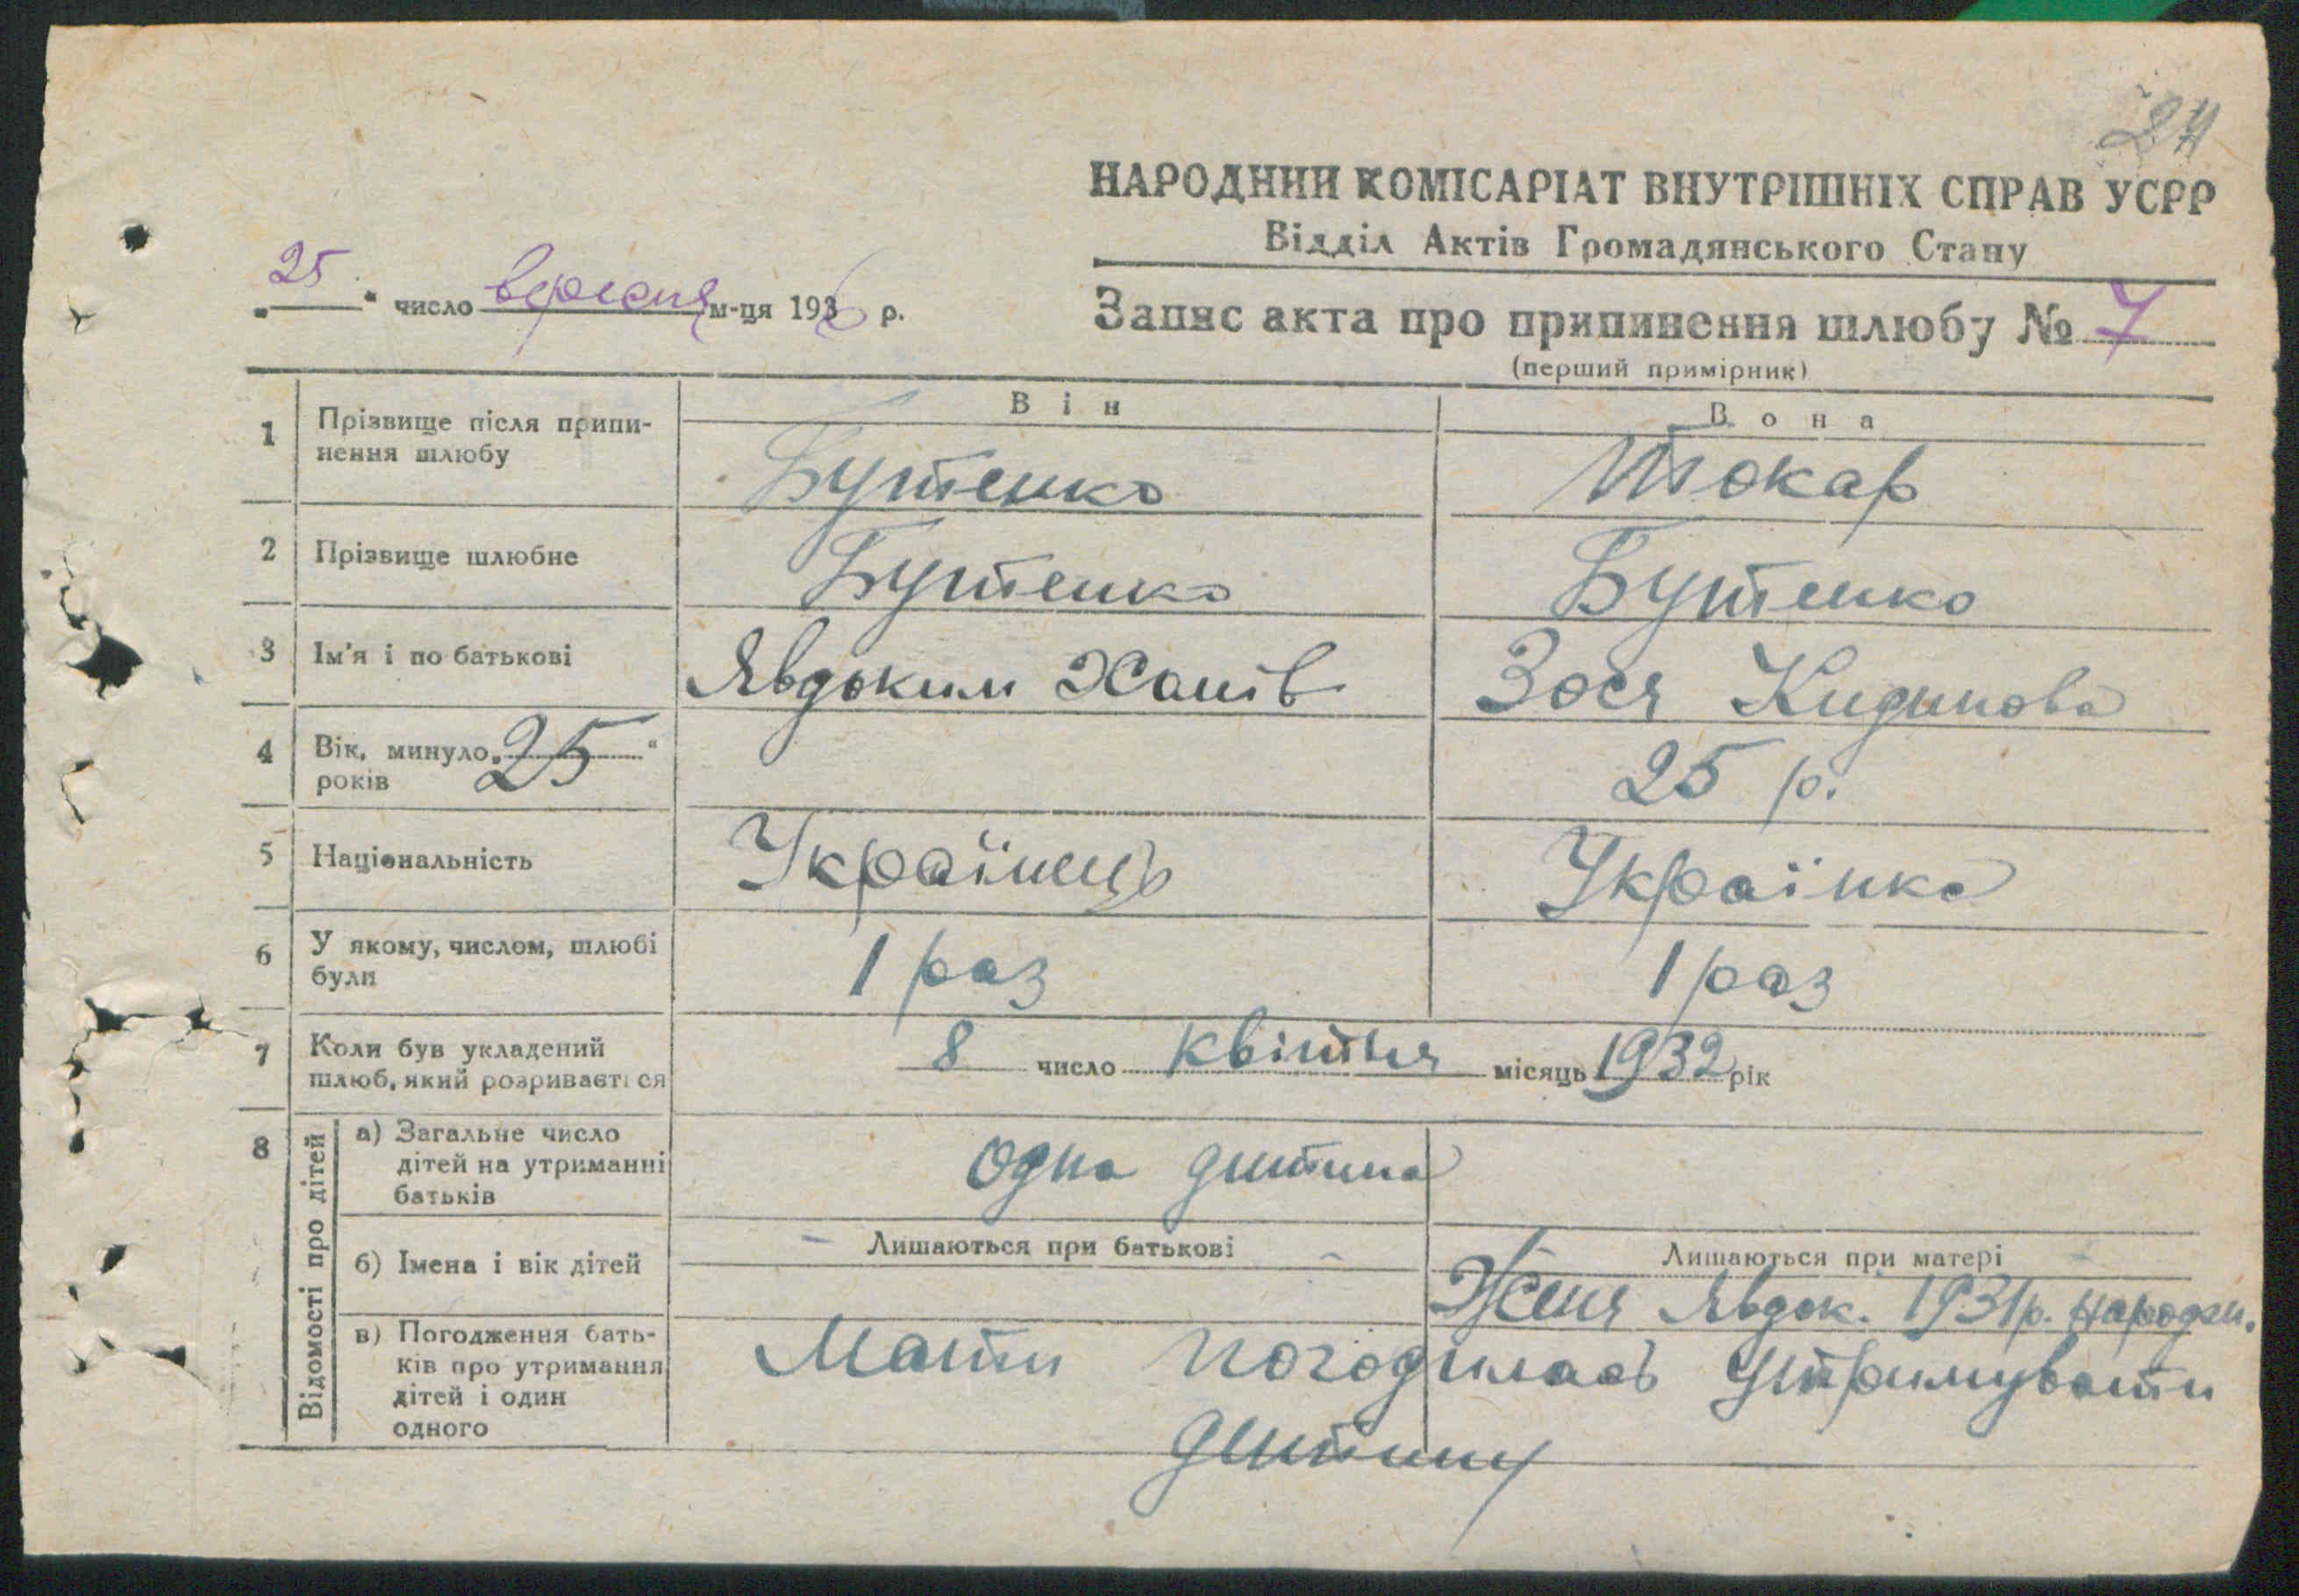 24
НАРОДНИЙ КОМІСАРІАТ ВНУТРІШНІХ СПРАВ УСРР
Відділ Актів Громадянського Стану
„25“ число вересня м-ця 1936 р.
Запис акта про припинення шлюбу № 7
(перший примірник)
Він Вона
1 Прізвище після припи-
нення шлюбу
Бутенко Токар
2 Прізвище шлюбне Бутенко Бутенко
3 Ім'я і по батькові Явдоким Зося
4 Вік, минуло „25“
років
25 р.
5 Національність Українець Українка
6 У якому, числом, шлюбі
були
1 раз 1 раз
7 Коли був укладений
шлюб, який розривається
8 число квітня місяць 1932 рік
8 Відомості про дітей
а) Загальне число
дітей на утриманні
батьків
одна дитина
б) Імена і вік дітей
Лишаються при батькові Лишаються при матері
Женя Явдок. 1931р. народж.
в) Погодження бать-
ків про утримання
дітей і один
одного
Мати погодилась утримувати
дитину